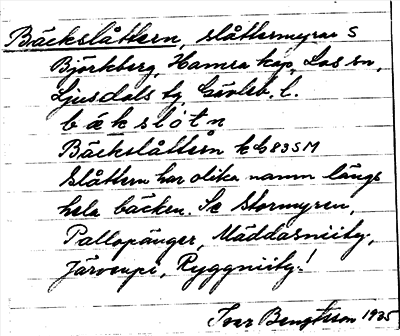 Bäckslåttern, slåttermyrar S
Björkberg, Hamra kap, Los sn,
Ljusdals tg, Gävleb. l.
b ä k s l ò t n
Bäckslåttern k C 83 SM
Slåttern har olika namn längs
hela bäcken. Se Stormyren,
Pallopänger, Mäddasniity,
Järvenpä, Ryggniity!
Ivar Bengtsson 1935